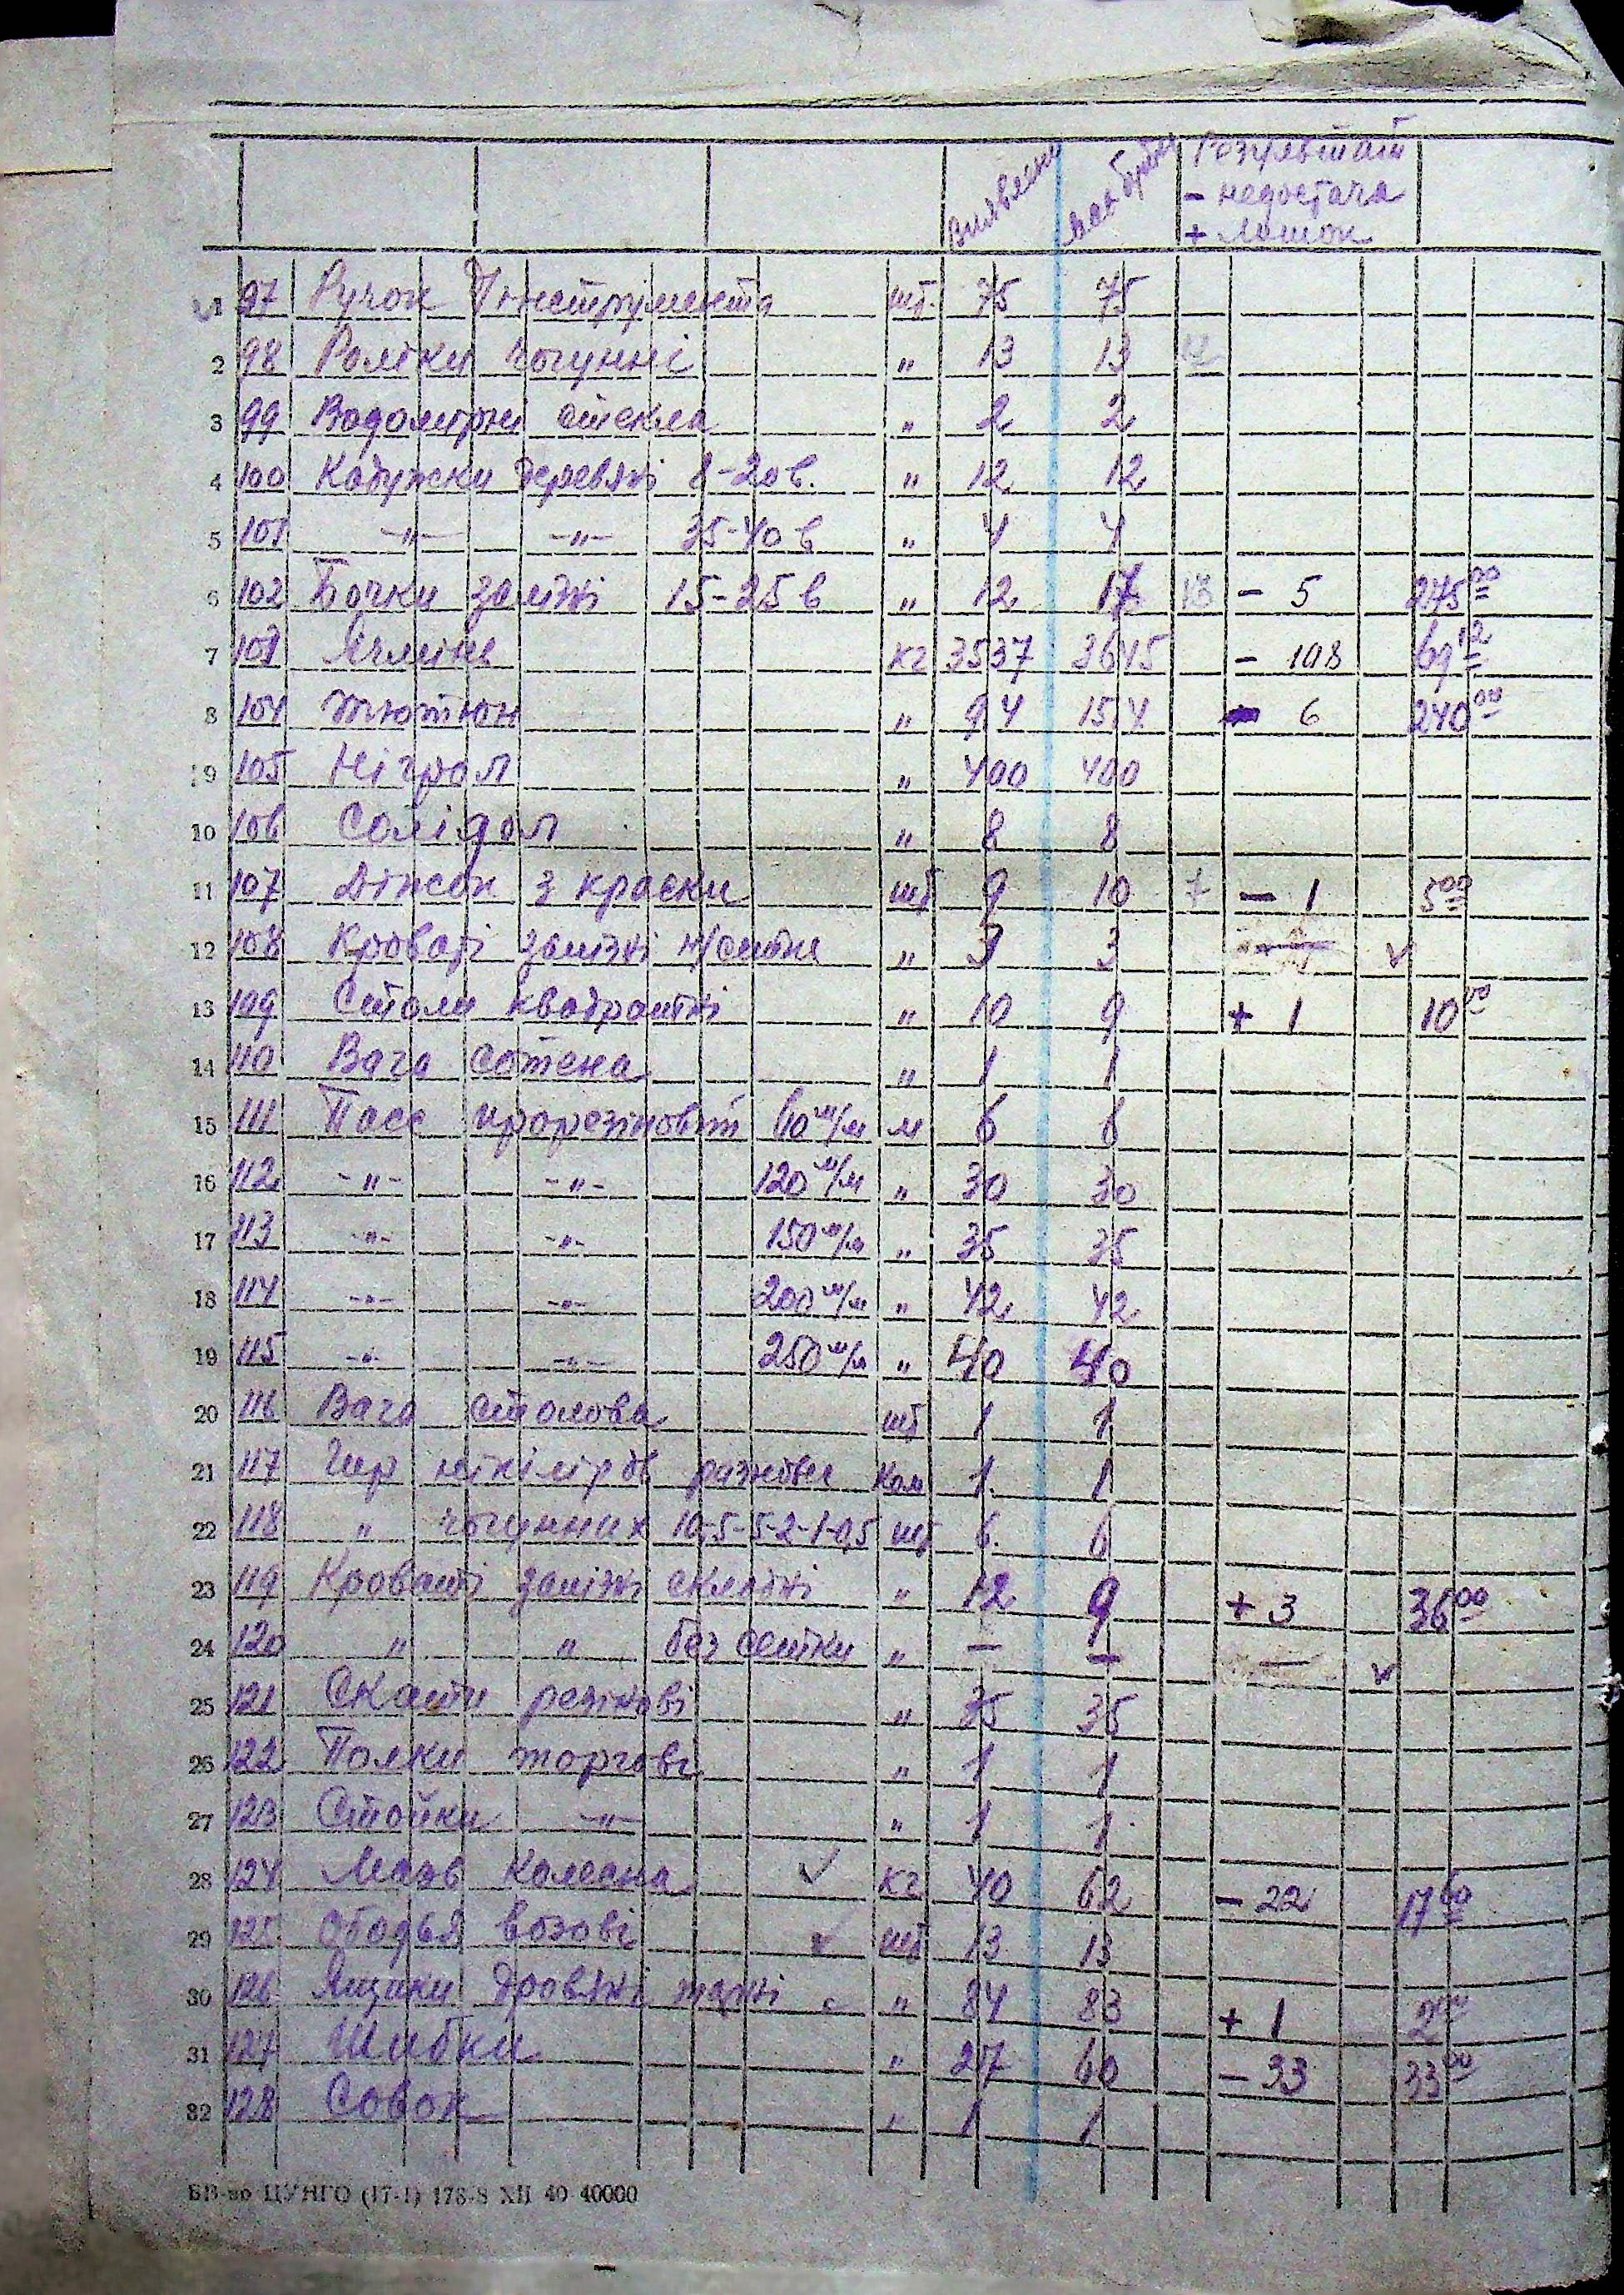 Виявлено має бути Результат
- недостача
+ лишок
1 97 Ручок інструмента шт. 75 75
2 98 Роліки чогунні " 13 13
3 99 Водомірні стекла " 2 2
4 100 Кадушки деревяні 8-20 в. " 12 12
5 101 -"- -"- 35-40 в " 4 4
6 102 Бочки залізні 15-25 в " 12 17 - 5 275 00
7 103 Ячмінь кг 3537 3645 - 108 69 12
8 104 Тютюн " 94 154 6 240 00
9 105 Нігрол " 400 400
10 106 Солідол " 8 8
11 107 Діжок з краски шт 9 10 7 - 1 5 00
12 108 Кроваті залізні " 3 3 ✓
13 109 Столи квадратні " 10 9 + 1 10 00
14 110 Вага сотена " 1 1
15 111 Пасс прорезіновий 60 м/м м 6 6
16 112 -"- -"- 120 м/м " 30 30
17 113 -"- -"- 150 м/м " 35 35
18 114 -"- -"- 200 м/м " 42 42
19 115 -"- -"- 250 м/м " 40 40
20 116 Вага столова шт 1 1
21 117 Гир Ком 1 1
22 118 " чогунних 10-5-5-2-1-0,5 шт 6 6
23 119 Кроваті залізні складні " 12 9 + 3 36 00
24 120 " " без сетки " — — — ✓
25 121 Скати резінові " 35 35
26 122 Полки торгові " 1 1
27 123 Стойки -"- " 1 1
28 124 Мазь колесна ✓ кг 40 62 - 22 17 60
29 125 Ободья возові шт 13 13
30 126 Ящики дровяні тарні " 84 83 + 1 2 00
31 127 Шибки " 27 60 - 33 33 00
32 128 Совок " 1 1
БВ-во ЦУНГО (17-1) 178-S XII 40 40000